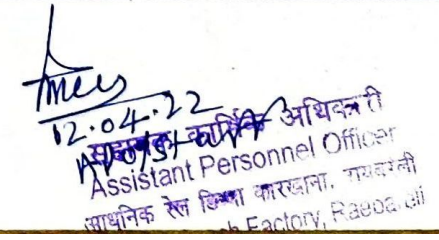 12.04.22
सहायक कार्मिक अधिकारी
Assistant Personnel Officer
आधुनिक रेल डिब्बा कारखाना, रायबरेली
Factory, Raebareli